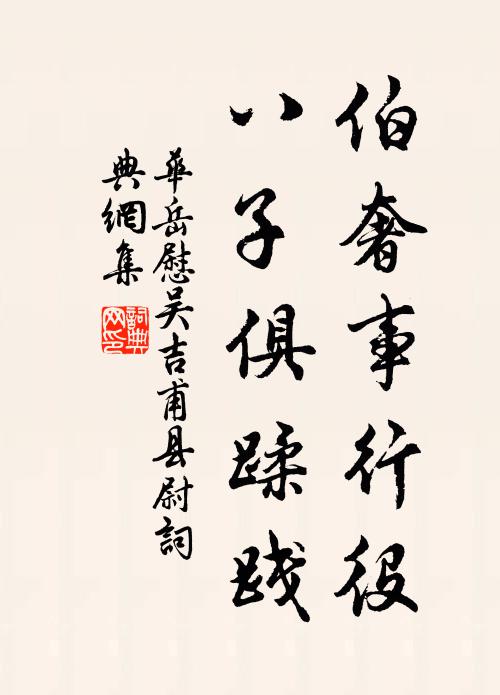 伯奢事行役
八子俱蹂践
華岳慰吴吉甫县尉詞
典網集
詞典网印